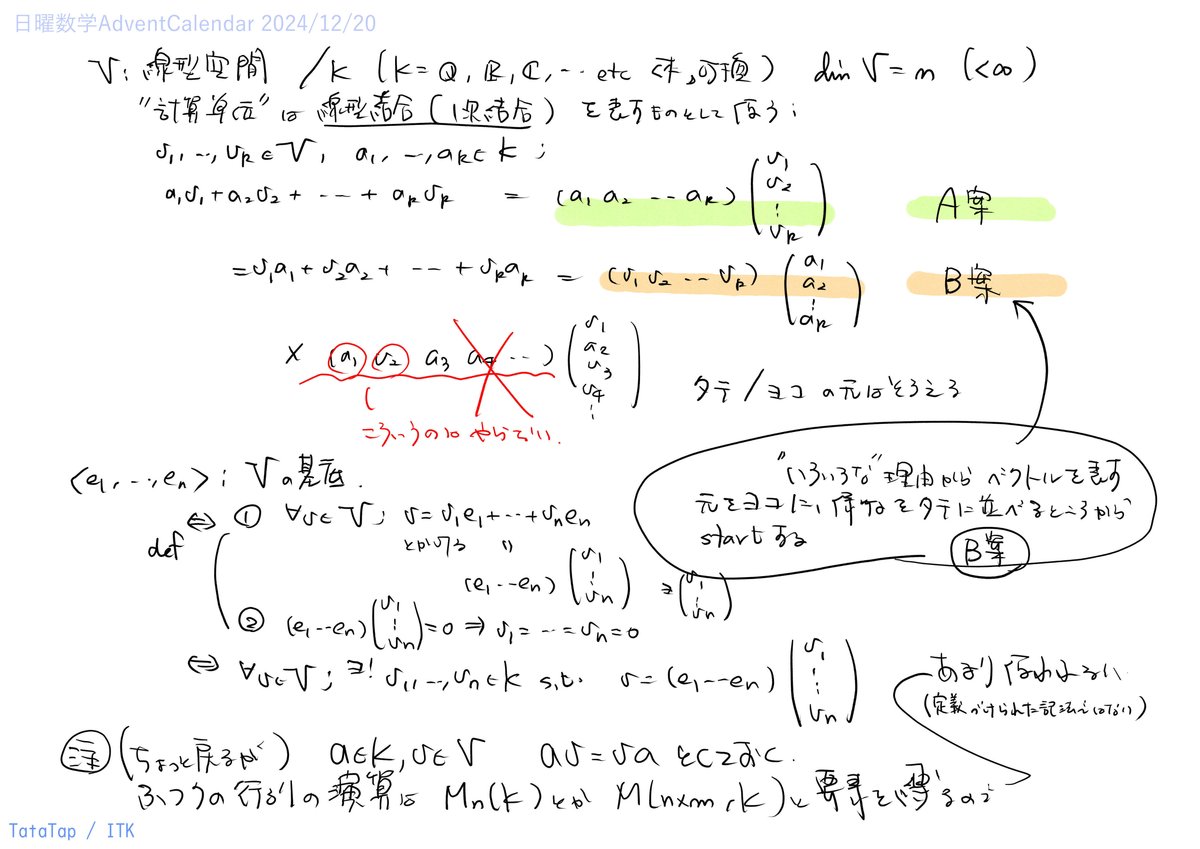 日曜数学AdventCalendar 2024/12/20
V: 線型空間 /k (k=Q, R, C, … etc 体, 可換) dim V = n (<∞)
"計算単位" は 線型結合 (1次結合) を表すものとして使う;
v1, …, vk ∈ V, a1, …, ak ∈ k ;
a1v1 + a2v2 + … + akvk = (a1 a2 … ak) (v1 v2 ⋮ vk) A案
= v1a1 + v2a2 + … + vkak = (v1 v2 … vk) (a1 a2 ⋮ ak) B案
× (a1 v2 a3 a4 …) (v1 a2 v3 v4 ⋮)
こういうのは やらない.
タテ/ヨコ の元はそろえる
"いろいろな" 理由から ベクトルを表す
元をヨコに, 係数をタテに並べるところから
startする
B案
<e1, …, en> ; Vの基底.
def ⇔ ① ∀v∈V; v = v1e1 + … + vnen
とかける
(e1 … en) (v1 ⋮ vn) ∃(v1 ⋮ vn)
② (e1 … en) (v1 ⋮ vn) = 0 ⇒ v1 = … = vn = 0
⇔ ∀v∈V; ∃! v1, …, vn ∈ k s.t. v = (e1 … en) (v1 ⋮ ⋮ vn)
あまり使われない
(定義づけられた記法ではない)
注 (ちょっと戻るが) a∈k, v∈V av = va としておく.
ふつうの行列の演算は Mn(k) とか M(n×m, k) と 要素を
TataTap / ITK